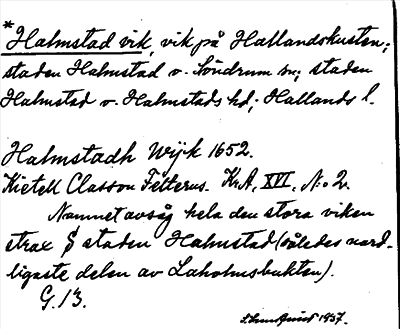 *Halmstad vik, vik på Hallandskusten;
staden Halmstad o. Söndrum sn; staden
Halmstad o. Halmstads hd; Hallands l.
Halmstadh Wijk 1652.
Kietell Classon Felterus. KrA, XVI, No 2.
Namnet avsåg hela den stora viken
strax S staden Halmstad (således nord-
ligaste delen av Laholmsbukten).
G. 13.
1937.